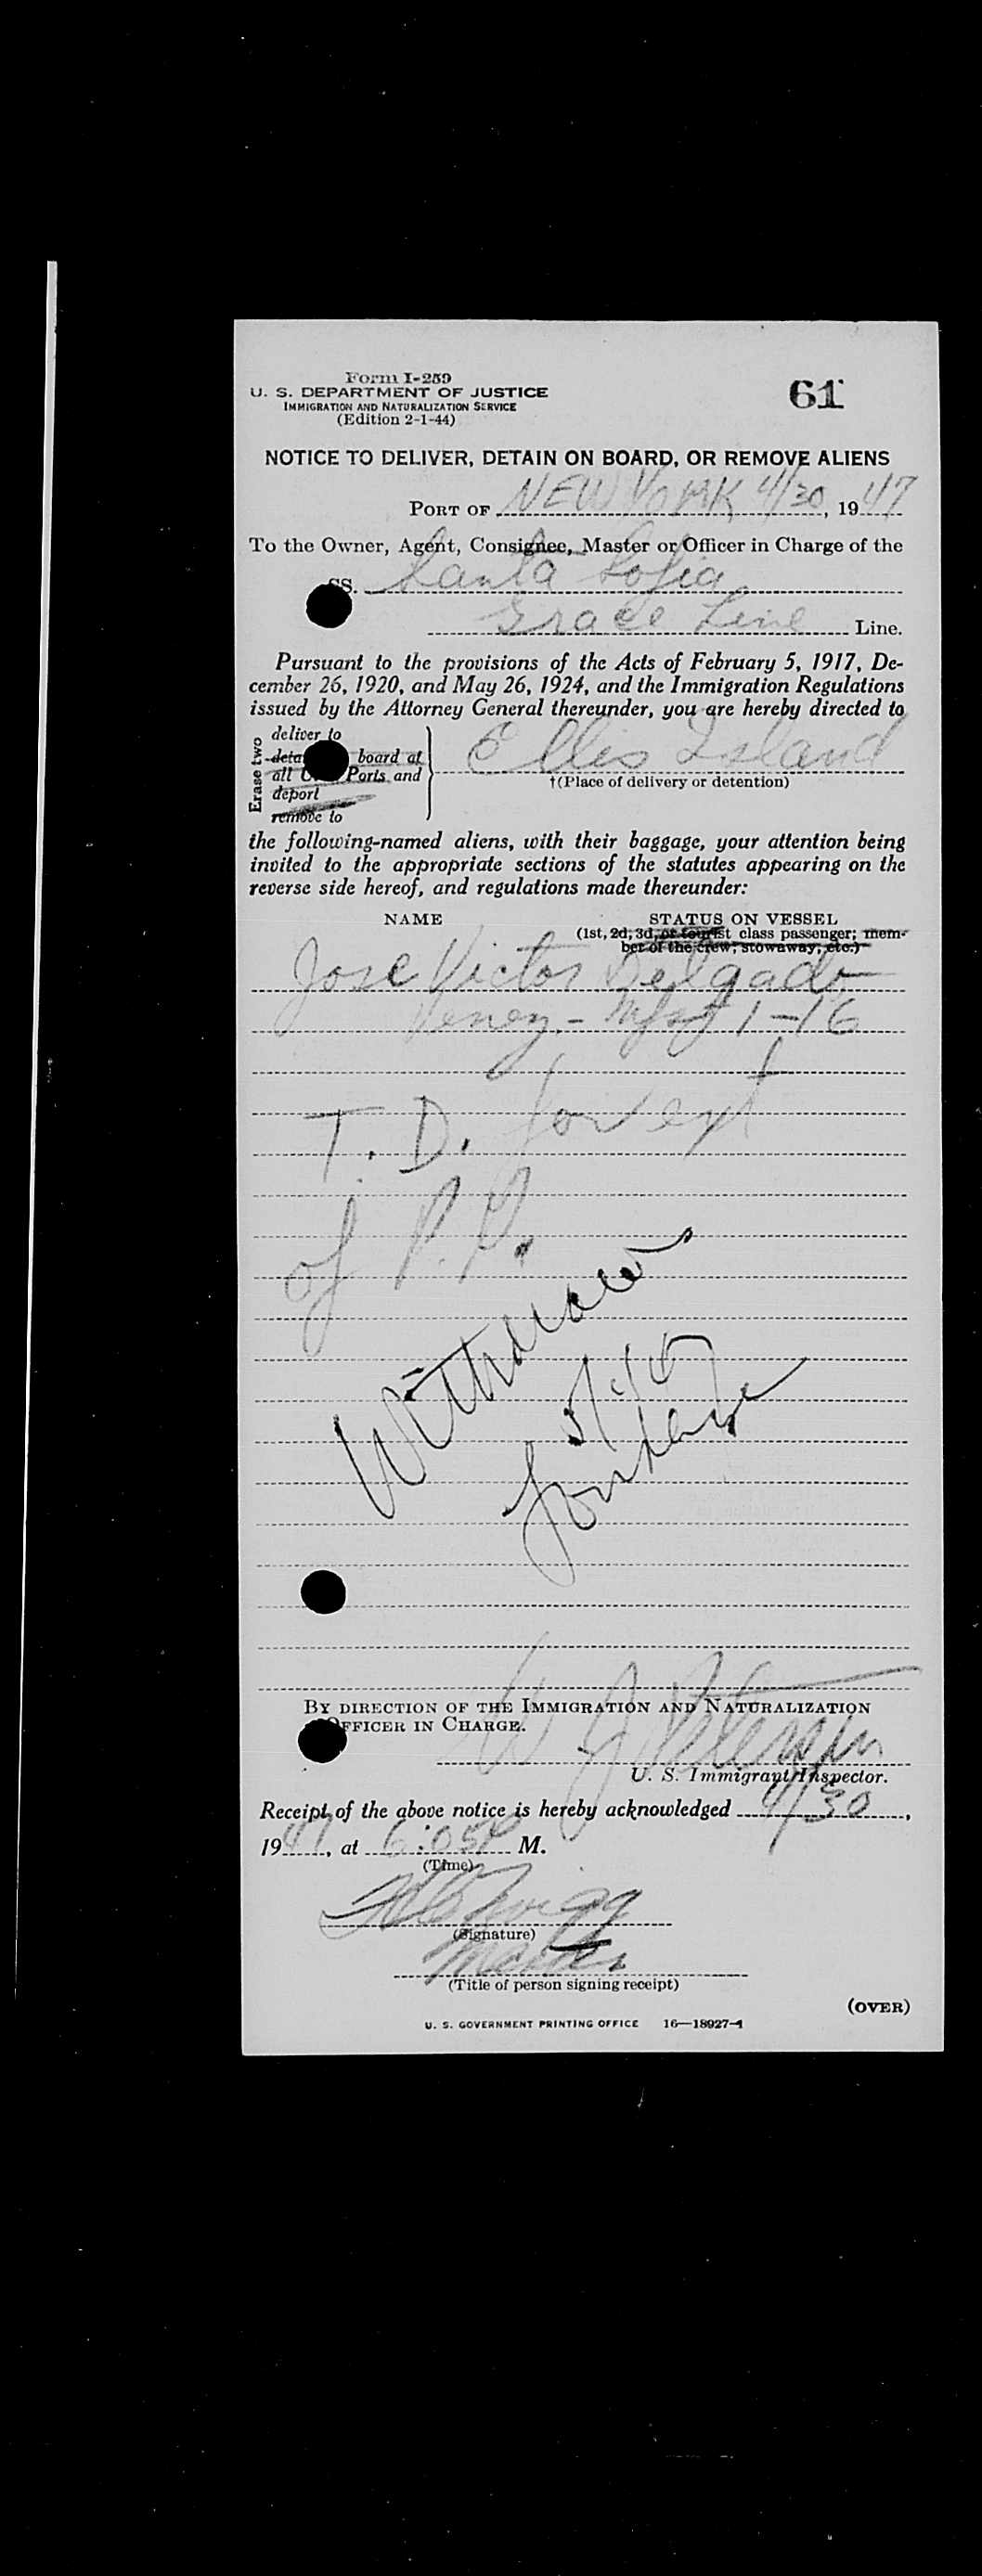 Form I-259
U. S. DEPARTMENT OF JUSTICE
IMMIGRATION AND NATURALIZATION SERVICE
(Edition 2-1-44)
61
NOTICE TO DELIVER, DETAIN ON BOARD, OR REMOVE ALIENS
PORT OF NEW YORK 4/30, 1947
To the Owner, Agent, Consignee, Master or Officer in Charge of the
SS. Santa Sofia
Grace Line Line.
Pursuant to the provisions of the Acts of February 5, 1917, De-
cember 26, 1920, and May 26, 1924, and the Immigration Regulations
issued by the Attorney General thereunder, you are hereby directed to
Erase two
deliver to
board at
all Ports and
deport
remove to
Ellis Island
†(Place of delivery or detention)
the following-named aliens, with their baggage, your attention being
invited to the appropriate sections of the statutes appearing on the
reverse side hereof, and regulations made thereunder:
NAME STATUS ON VESSEL
(1st, 2d, 3d, or tourist class passenger; mem-
ber of the crew, stowaway, etc.)
Jose Victor Delgado
Venez. - Mfst 1-16
T. D. for ext
of
Withdrawn
BY DIRECTION OF THE IMMIGRATION AND NATURALIZATION
OFFICER IN CHARGE.
W J Peterson
U. S. Immigrant Inspector.
Receipt of the above notice is hereby acknowledged 4/30,
1947, at 6:05P M.
(Time)
(Signature)
Master
(Title of person signing receipt)
(OVER)
U. S. GOVERNMENT PRINTING OFFICE 16—18927-1